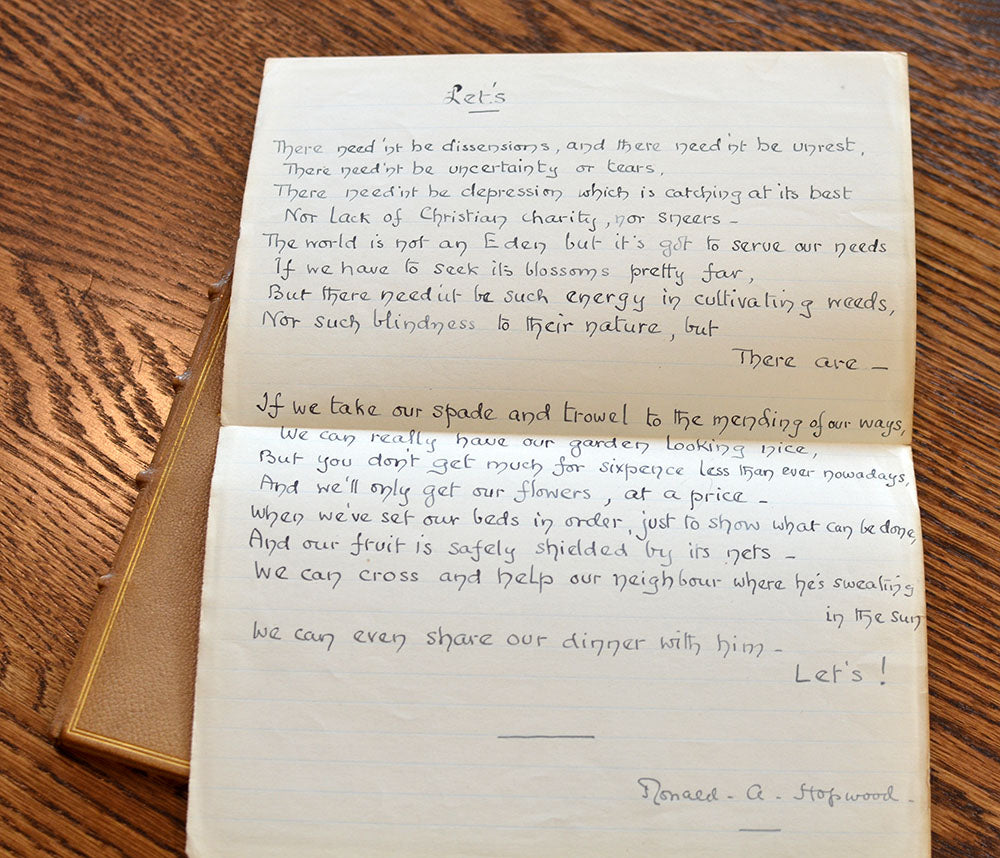 Let's
There need'nt be dissensions, and there need'nt be unrest,
There need'nt be uncertainty or tears,
There need'nt be depression which is catching at its best
Nor lack of Christian charity, nor sneers –
The world is not an Eden but it's got to serve our needs
If we have to seek its blossoms pretty far,
But there need'nt be such energy in cultivating weeds,
Nor such blindness to their nature, but
There are –
If we take our spade and trowel to the mending of our ways,
We can really have our garden looking nice,
But you don't get much for sixpence less than ever nowadays,
And we'll only get our flowers, at a price –
When we've set our beds in order, just to show what can be done,
And our fruit is safely shielded by its nets –
We can cross and help our neighbour where he's sweating
in the sun
We can even share our dinner with him –
Let's!
Ronald. A. Hopwood.